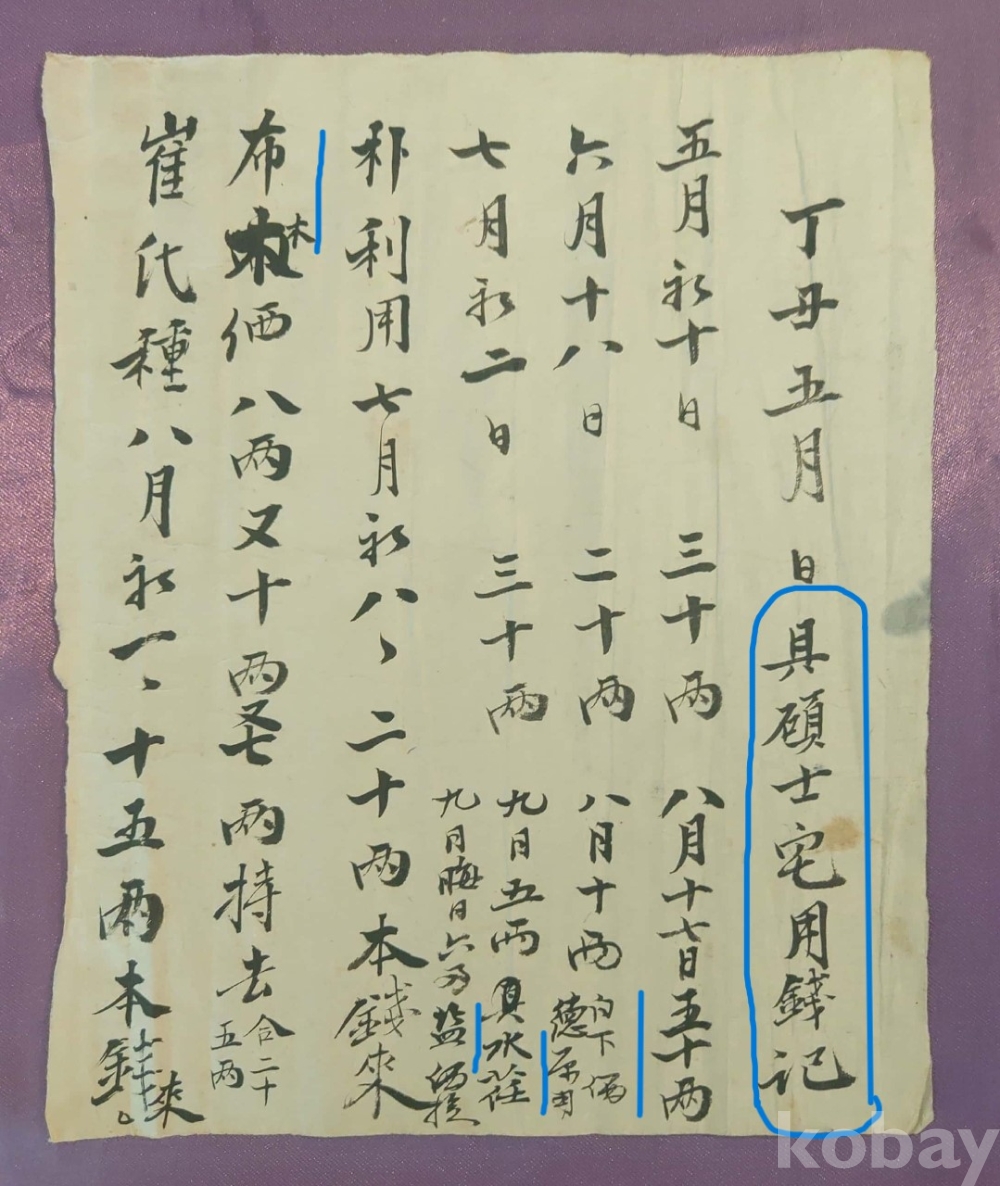 丁丑五月 日具碩士宅用錢記
五月初十日 三十兩 八月十七日五十兩
六月十八日 二十兩 八月十兩 白下価
七月初二日 三十兩 九月五兩
九月晦日六兩
朴利用七月初八、二十兩本錢來
布木価八兩又十兩又七兩持去合二十
五兩
崔代種八月初一、十五兩本錢來
kobay